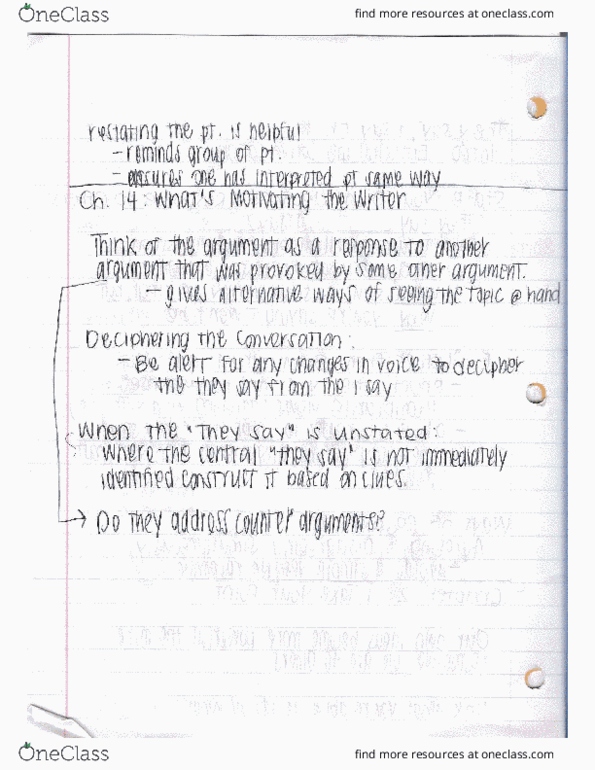 OneClass
find more resources at oneclass.com
restating the pt. is helpful
- reminds group of pt.
- ensures one has interpreted pt same way
Ch. 14: What's Motivating the Writer
Think of the argument as a response to another
argument that was provoked by some other argument.
- gives alternative ways of seeing the topic @ hand
Deciphering the Conversation:
- Be alert for any changes in voice to decipher
the they say from the I say
When the "They say" is unstated:
Where the central "they say" is not immediately
identified construct it based on clues.
→ Do they address counter arguments?
OneClass
find more resources at oneclass.com